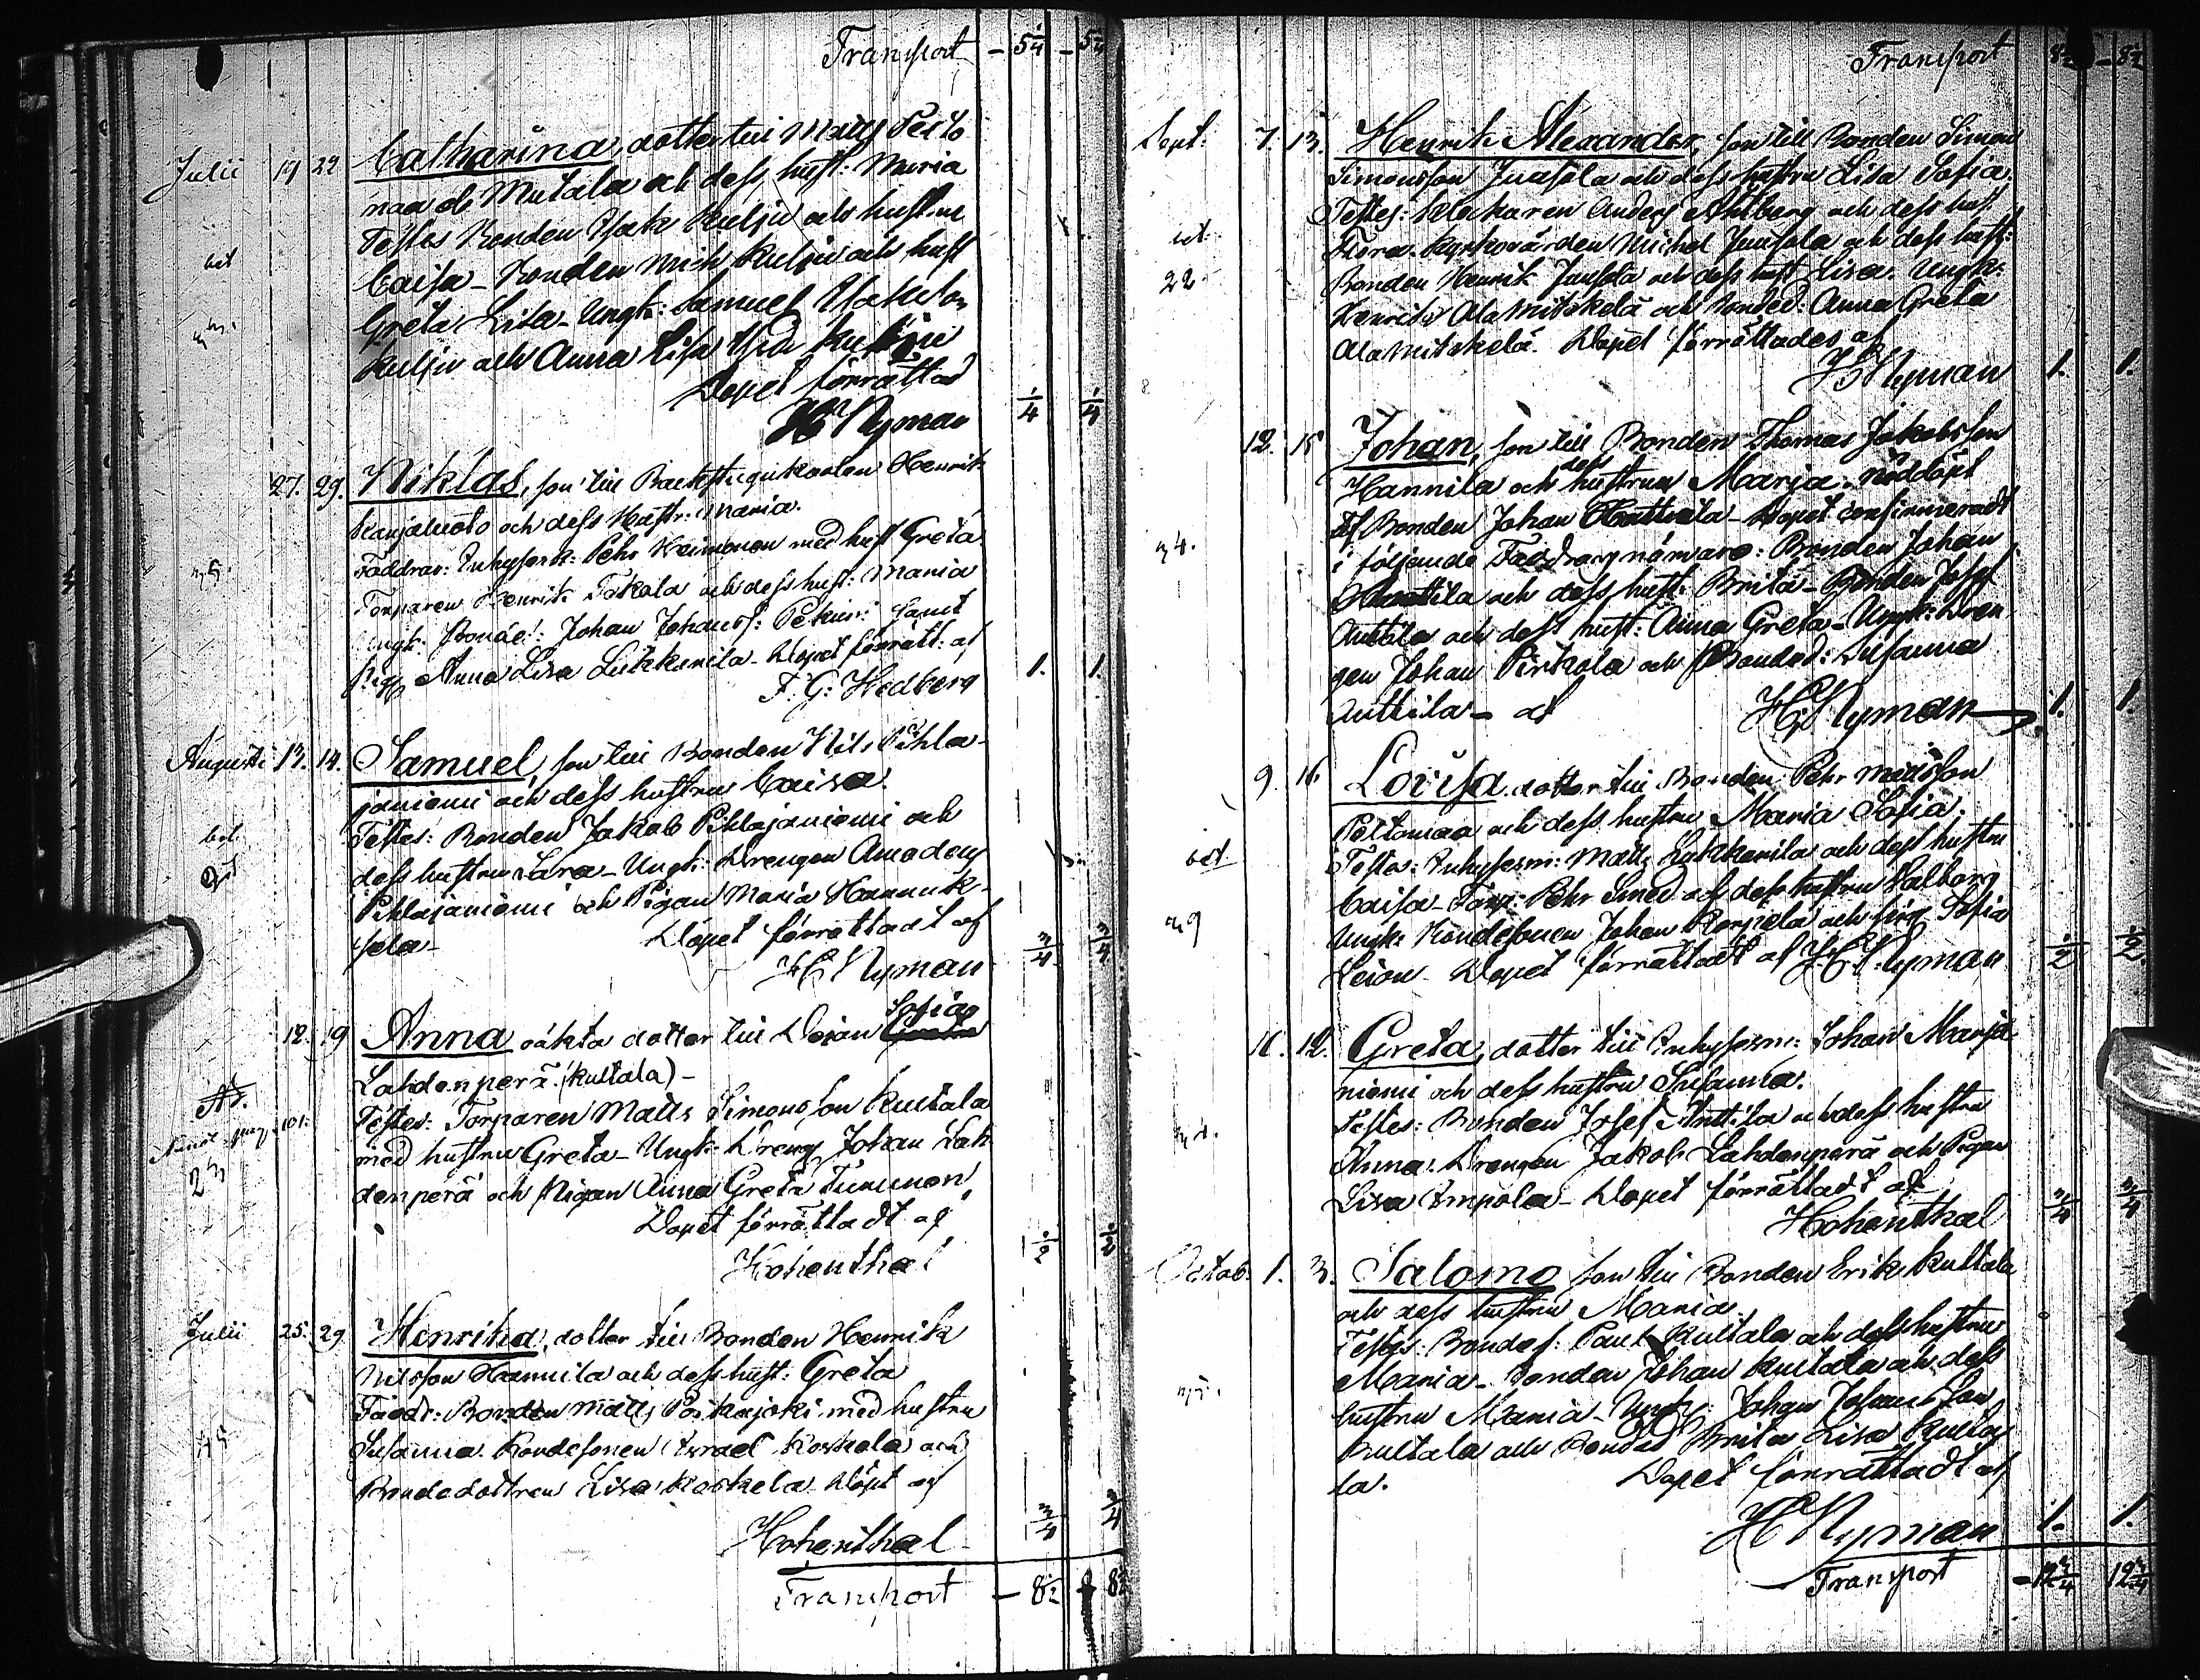 Transport - 5 1/4 - 5 1/4
Julii 19 22 Catharina, dotter till Matts Pelto
naa o. Mutala och dess hust: Maria
Testes Bonden Isak Kulju och hustru
Caisa - Bonden Mich Kulju och hust
Greta Lisa - Ungk: Samuel
Kulju och Anna Lisa Kulju
Dopet förrättad
HNyman 1/4 1/4
27. 29. Niklas, son till Henrik
Karjaluoto och dess Hustr: Maria.
Faddrar: Inhyses k: Pehr Heimonen med hust Greta
Torparen Henrik Takala och dess hust: Maria
Ungk: Johan Johanss: Pekuri samt
Pig: Anna Lisa Lukkarila - Dopet förrätt: af
F. G: Hedberg 1. 1.
Augusti 13. 14. Samuel, son till Bonden Nils Pihla-
janiemi och dess hustru Caisa.
Testes: Bonden Jakob Pihlajaniemi och
dess hustru Sara - Ungk: Drengen Amadeus
Pihlajaniemi och Pigan Maria Hannuk-
sela - Dopet förrättadt af
HNyman 3/4 3/4
12. 19 Anna oäkta dotter till Pigan Sofia
Lahdenperä (Kultala) -
Testes: Torparen Matts Simonsson Kultala
med hustru Greta - Ungk: Dreng Johan Lah
denperä och Pigan Anna Greta
Dopet förrättadt af
Hohenthal 1/2 1/2
Julii 25. 29 Henrika, dotter till Bonden Henrik
Nilsson Hannila och dess hust: Greta
Faddr: Bonden Matts Poikajoki med hustru
Susanna. Bondesonen Israel Koskela och
Bondedottren Lisa Koskela - Döpt af
Hohenthal 3/4 3/4
Transport - 8 1/2 8 1/2
Transport 8 1/2 - 8 1/2
Sept: 7. 13. Henrik Alexander, son till Bonden Simon
Simonsson Juusola och dess hustru Lisa Sofia.
Testes: Klockaren Anders Ahlberg och dess hust
Flora. Kyrkovärden Michel Juusola och dess hust:
Bonden Henrik Juusola och dess hust Lisa. Ungk:
Henrik Alamitskelä och Bonded: Anna Greta
Alamitskelä. Dopet förrättades af
HNyman 1. 1.
12. 15 Johan, son till Bonden Thomas Jakobsson
Hannila och dess hustrun Marja. nöddöpt
af Bonden Johan - Dopet confirmeradt
i följande Faddrars närvaro: Bonden Johan
och dess hust: Brita - Bonden Josef
Anttila och dess hust: Anna Greta - Ungk: Dren
gen Johan Pirkola och Bonded: Susanna
Anttila - af HNyman 1. 1.
9. 16 Lovisa dotter till Bonden Pehr Matsson
Peltomaa och dess hustru Maria Sofia.
Testes: Inhysesm: Matts Lukkarila och dess hustru
Caisa - Torp: Pehr Smed och dess hustru Valborg
Ungk: Bondesonen Johan Karjala och pig: Sofia
Leion - Dopet förrättadt af HNyman 1/2 1/2
11. 12. Greta, dotter till Inhysesm: Johan Marja
niemi och dess hustru Susanna.
Testes: Bonden Josef Anttila och dess hustru
Anna. Drengen Jakob Lahdenperä och Pigan
Lisa Impola - Dopet förrättadt af
Hohenthal 3/4 3/4
Octob. 1. 3. Salomo, son till Bonden Erik Kultala
och dess hustru Maria.
Testes: Bondes: Paul Kultala och dess hustru
Maria - Bonden Johan Kultala och dess
hustru Maria - Ungk: Johan Johansson
Kultala och Bonded Brita Lisa Kulta
la. Dopet förrättadt af
HNyman 1. 1.
Transport - 12 3/4 12 3/4